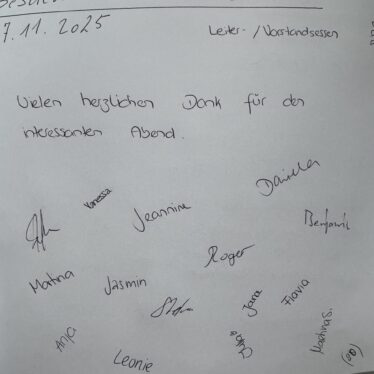 7.11.2025
Leiter- / Vorstandsessen
Vielen herzlichen Dank für den
interessanten Abend.
Daniela
Vanessa
Jeannine
Benjamin
Roger
Martina
Jasmin
Jana
Flavia
Martina S.
Anja
Leonie